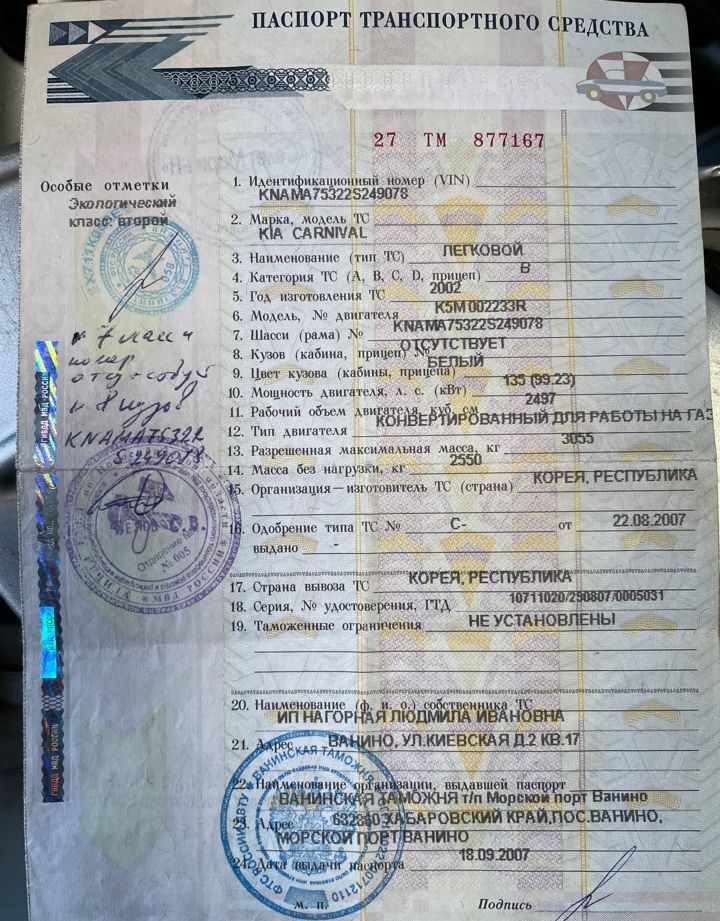 ПАСПОРТ ТРАНСПОРТНОГО СРЕДСТВА
27 ТМ 877167
Особые отметки
Экологический
класс: второй
1. Идентификационный номер (VIN)
KNAMA75322S249078
2. Марка, модель ТС
KIA CARNIVAL
3. Наименование (тип ТС) ЛЕГКОВОЙ
4. Категория ТС (A, B, C, D, прицеп) B
5. Год изготовления ТС 2002
6. Модель, № двигателя K5M 002233R
7. Шасси (рама) № KNAMA75322S249078
8. Кузов (кабина, прицеп) № ОТСУТСТВУЕТ
9. Цвет кузова (кабины, прицепа) БЕЛЫЙ
10. Мощность двигателя, л. с. (кВт) 135 (99.23)
11. Рабочий объем двигателя, куб. см 2497
12. Тип двигателя КОНВЕРТИРОВАННЫЙ ДЛЯ РАБОТЫ НА ГАЗ
13. Разрешенная максимальная масса, кг 3055
14. Масса без нагрузки, кг 2550
15. Организация—изготовитель ТС (страна) КОРЕЯ, РЕСПУБЛИКА
16. Одобрение типа ТС № С- от 22.08.2007
выдано -
17. Страна вывоза ТС КОРЕЯ, РЕСПУБЛИКА
18. Серия, № удостоверения, ГТД 10711020/290807/0005031
19. Таможенные ограничения НЕ УСТАНОВЛЕНЫ
20. Наименование (ф. и. о.) собственника ТС
ИП НАГОРНАЯ ЛЮДМИЛА ИВАНОВНА
21. Адрес ВАНИНО, УЛ.КИЕВСКАЯ Д.2 КВ.17
22. Наименование организации, выдавшей паспорт
ВАНИНСКАЯ ТАМОЖНЯ т/п Морской порт Ванино
23. Адрес 632860,ХАБАРОВСКИЙ КРАЙ,ПОС.ВАНИНО,
МОРСКОЙ ПОРТ ВАНИНО
24. Дата выдачи паспорта 18.09.2007
м. п. Подпись
KNAMA7532R
Отделение №
№ 005
МВД РОССИИ
ГИБДД МВД РОССИИ
ГИБДД МВД РОССИИ
ВАНИНСКАЯ ТАМОЖНЯ